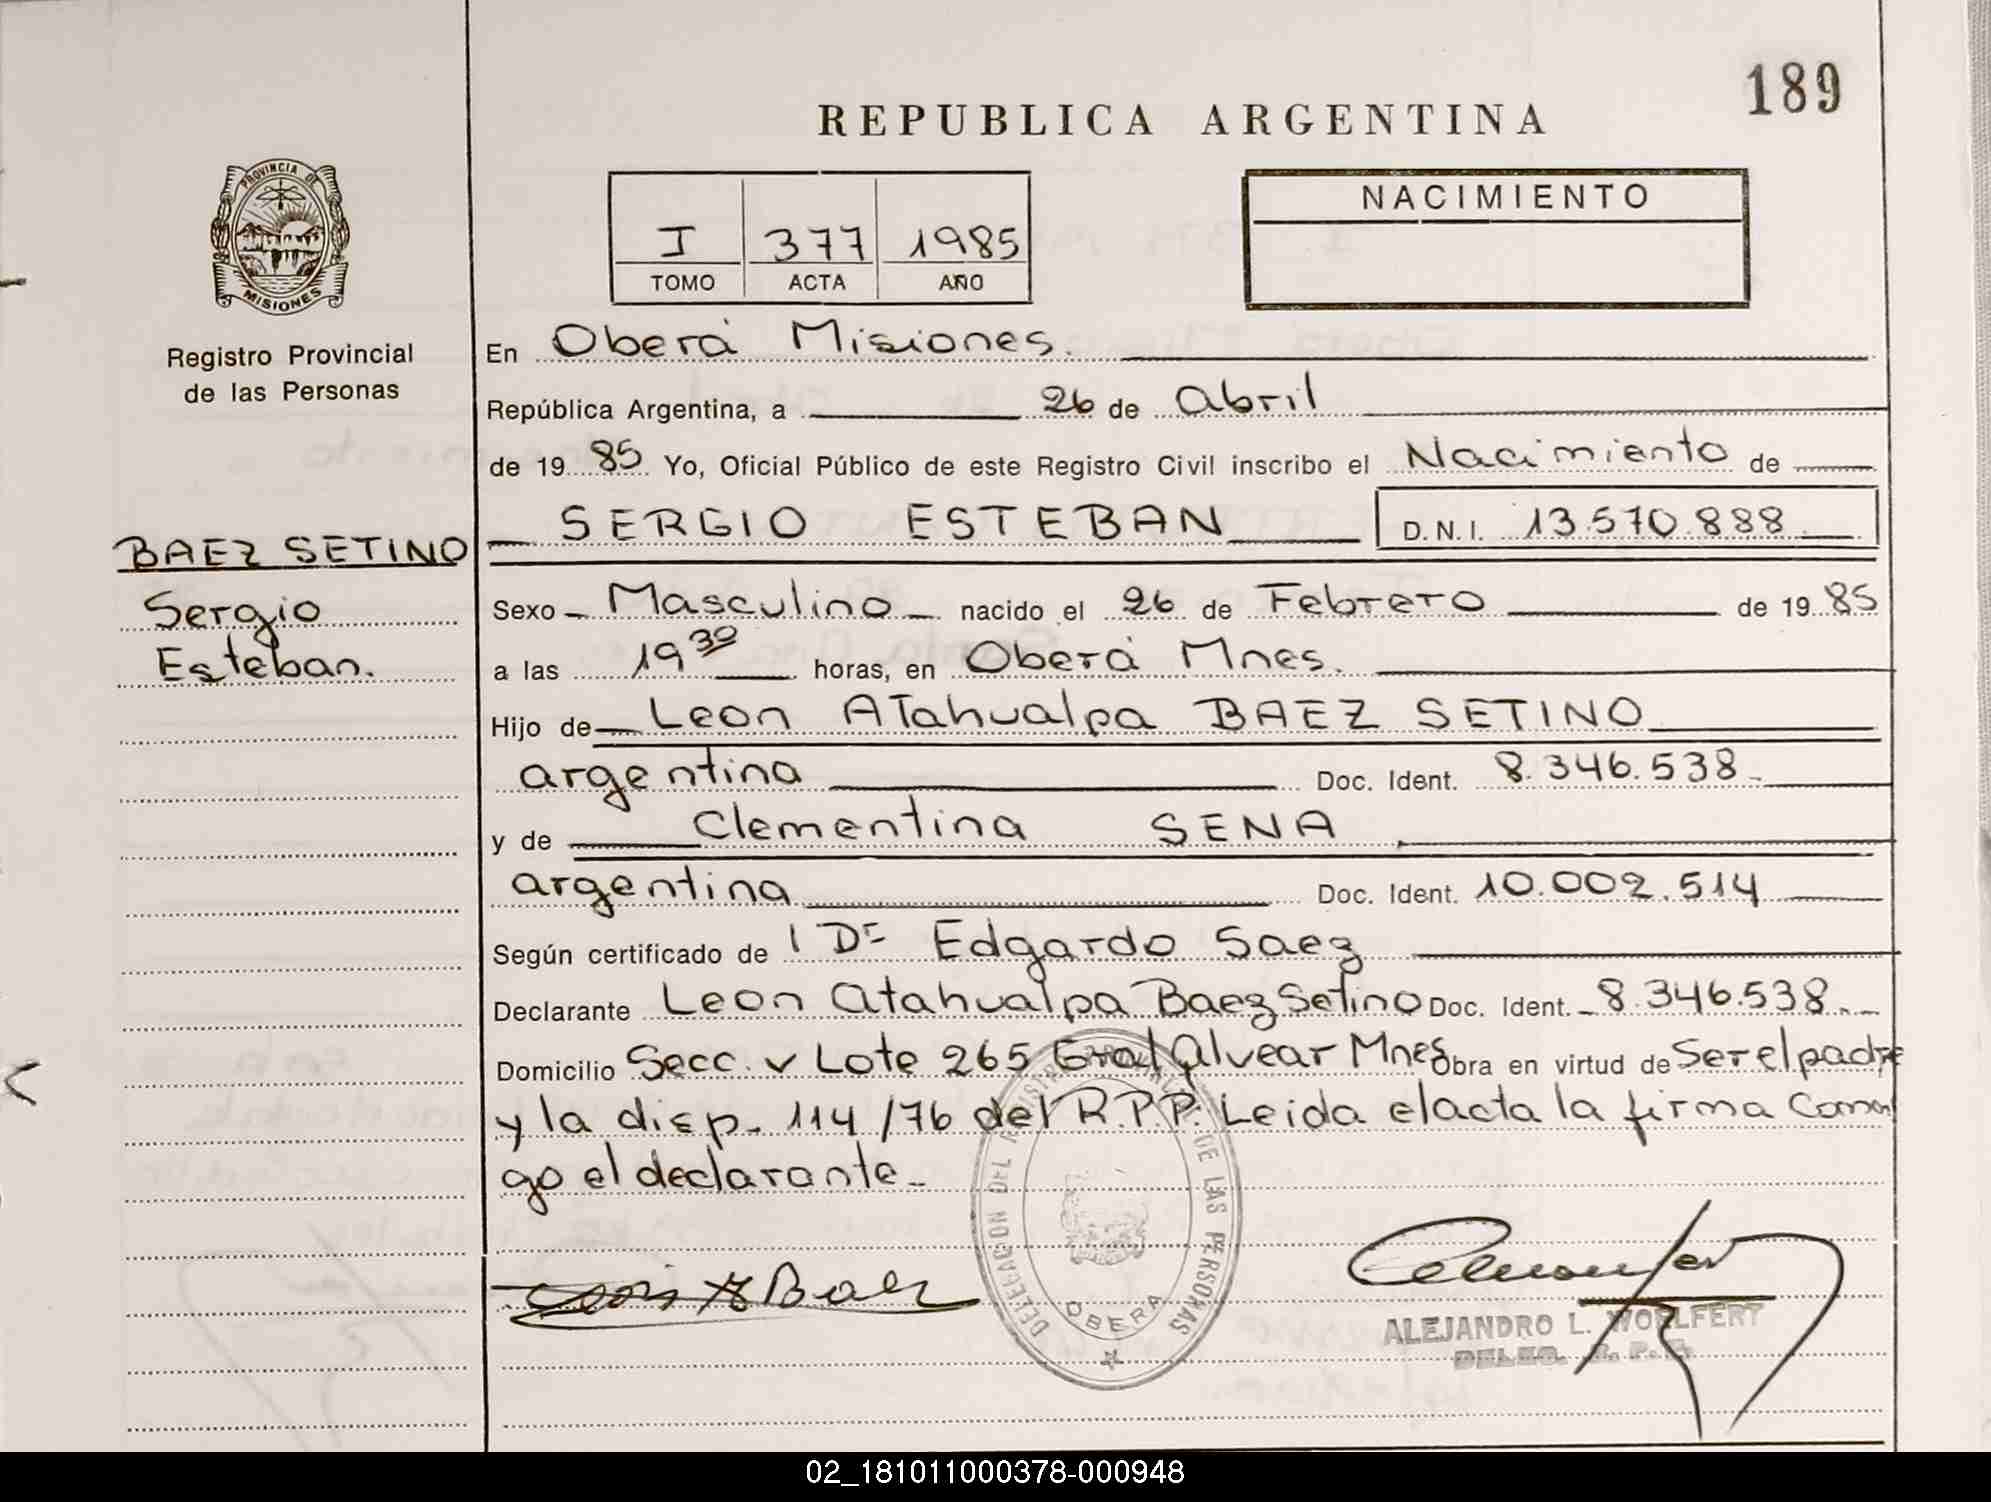 189
REPUBLICA ARGENTINA
PROVINCIA DE
MISIONES
Registro Provincial
de las Personas
I 377 1985
TOMO ACTA AÑO
NACIMIENTO
En Oberá Misiones.
República Argentina, a 26 de Abril
de 1985 Yo, Oficial Público de este Registro Civil inscribo el Nacimiento de
SERGIO ESTEBAN D.N.I. 13.570.888
BAEZ SETINO
Sergio
Esteban.
Sexo Masculino nacido el 26 de Febrero de 1985
a las 19 30 horas, en Oberá Mnes.
Hijo de Leon Atahualpa BAEZ SETINO
argentina Doc. Ident. 8.346.538
y de Clementina SENA
argentina Doc. Ident. 10.002.514
Según certificado de 1 Dr Edgardo Saez
Declarante Leon Atahualpa Baez Setino Doc. Ident. 8.346.538.
Domicilio Secc. v Lote 265 Gral Alvear Mnes Obra en virtud de Ser el padre
y la disp. 114/76 del R.P.P. Leida el acta la firma Conmi
go el declarante
DELEGADO NO DEL REGISTRO PROVINCIAL DE LAS PERSONAS
OBERA
ALEJANDRO L. WOELFERT
DELEG. R. P. P.
02_181011000378-000948